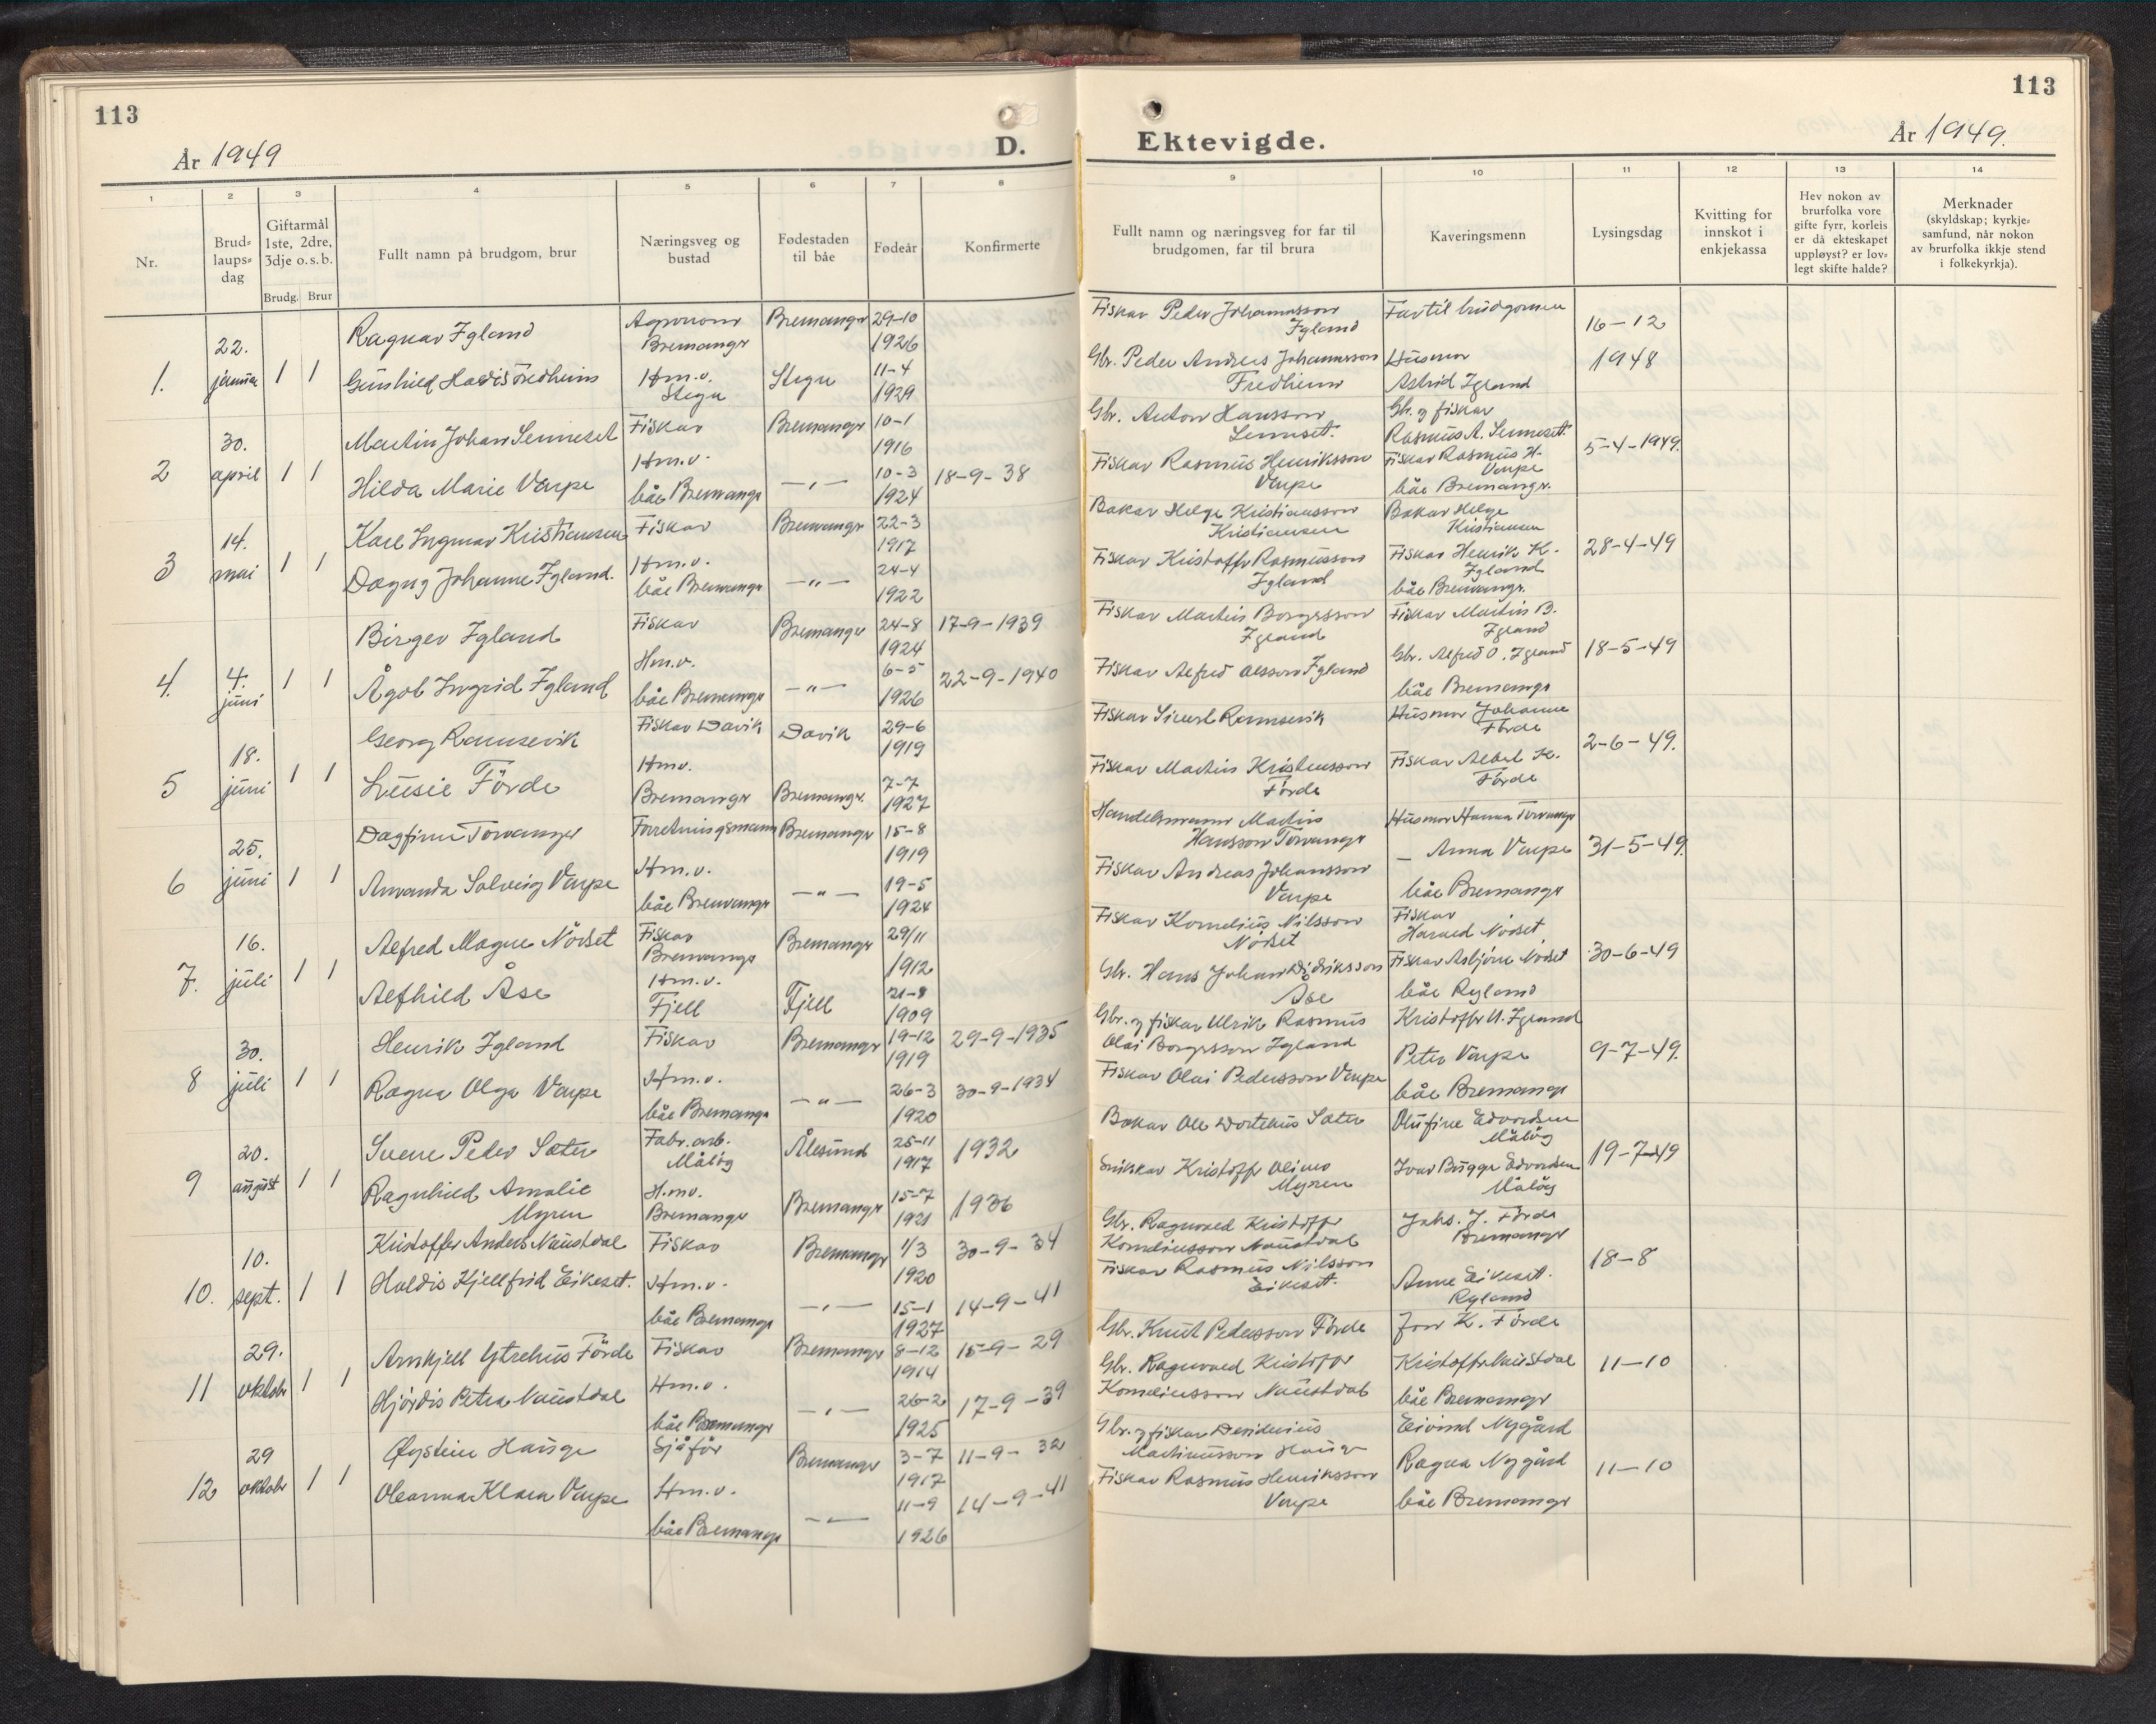 113
År 1949
D.
1 2 3 4 5 6 7 8
Nr.
Brud-
laups-
dag
Giftarmål
1ste, 2dre,
3dje o.s.b.
Brudg. Brur
Fullt namn på brudgom, brur
Næringsveg og
bustad
Fødestaden
til båe
Fødeår
Konfirmerte
1. 22. januar 1 1
Ragnar Igland Agronom Bremanger Bremanger 29-10 1926
Gunhild Hardis Fredheim Hm.v. Stegn Stegn 11-4 1929
2 30. april 1 1
Martin Johan Senneset Fiskar Bremanger 10-1 1916
Hilda Marie Varpe Hm.v. båe Bremanger —„— 10-3 1924 18-9-38
3 14. mai 1 1
Karl Ingmar Kristiansen Fiskar Bremanger 22-3 1917
Dagny Johanne Igland. Hm.v. båe Bremanger —„— 24-4 1922
4. 4. juni 1 1
Birger Igland Fiskar Bremanger 24-8 1924 17-9-1939
Ågot Ingrid Igland Hm.v. båe Bremanger —„— 6-5 1926 22-9-1940
5 18. juni 1 1
Georg Ramsevik Fiskar Davik Davik 29-6 1919
Luisie Förde Hmv. Bremanger Bremanger. 7-7 1927
6 25. juni 1 1
Dagfinn Torvanger Forretningsmann Bremanger 15-8 1919
Amanda Solveig Varpe Hm.v. båe Bremanger —„— 19-5 1924
7. 16. juli 1 1
Alfred Magne Nödset Fiskar Bremanger Bremanger 29/11 1912
Alfhild Åse Hm.v. Fjell Fjell 21-8 1909
8 30. juli 1 1
Henrik Igland Fiskar Bremanger 19-12 1919 29-9-1935
Ragna Olga Varpe Hm.v. båe Bremanger —„— 26-3 1920 30-9-1934
9 20. august 1 1
Sverre Peder Sæter Fabr.arb. Måløy Ålesund 25-11 1917 1932
Ragnhild Amalie Myren H.mv. Bremanger Bremanger 15-7 1921 1936
10. 10. sept. 1 1
Kristoffer Anders Naustdal Fiskar Bremanger 1/3 1920 30-9-34
Haldis Kjellfrid Eikeset. Hm.v. båe Bremanger —„— 15-1 1927 14-9-41
11 29. oktobr 1 1
Arnkjell Ytrehus Förde Fiskar Bremanger 8-12 1914 15-9-29
Hjördis Petra Naustdal Hm.v. båe Bremanger —„— 26-2 1925 17-9-39
12 29 oktobr 1 1
Øystein Hauge Sjåför Bremanger 3-7 1917 11-9-32
Oleanna Klara Varpe Hm.v. båe Bremanger —„— 11-9 1926 14-9-41
113
Ektevigde.
År 1949.
9 10 11 12 13 14
Fullt namn og næringsveg for far til
brudgomen, far til brura
Kaveringsmenn
Lysingsdag
Kvitting for
innskot i
enkjekassa
Hev nokon av
brurfolka vore
gifte fyrr, korleis
er då ekteskapet
uppløyst? er lov-
legt skifte halde?
Merknader
(skyldskap; kyrkje-
samfund, når nokon
av brurfolka ikkje stend
i folkekyrkja).
Fiskar Peder Johannsson Igland Far til brudgomen 16-12
Gbr. Peder Andreas Johannsson Fredheim Husmor Astrid Igland 1948
Gbr. Anton Hansson Senneset. Gbr. og fiskar Rasmus A. Senneset. 5-4-1949.
Fiskar Rasmus Henriksson Varpe Fiskar Rasmus H. Varpe båe Bremanger.
Bakar Helge Kristiansson Kristiansen Bakar Helge Kristiansen 28-4-49
Fiskar Kristoffr Rasmusson Igland Fiskar Henrik K. Igland båe Bremangr.
Fiskar Martin Borgesson Igland Fiskar Martin B. Igland 18-5-49
Fiskar Alfred Olsson Igland Gbr. Alfred O. Igland båe Bremanger
Fiskar Sivert Ramsevik Husmor Johanne Förde 2-6-49.
Fiskar Martin Kristensson Förde Fiskar Albert K. Förde
Handelsmann Martin Hansson Torvanger Husmor Hanna Torvanger 31-5-49.
Fiskar Andreas Johansson Varpe — Anna Varpe båe Bremanger
Fiskar Kornelius Nilsson Nödset Fiskar Harald Nödset 30-6-49
Gbr. Hans Johan Didriksson Åse Fiskar Asbjörn Nödset båe Rylond
Gbr. og fiskar Ulrik Rasmus Olai Borgesson Igland Kristoffr U. Igland 9-7-49.
Fiskar Olai Pedersson Varpe Peter Varpe båe Bremanger
Bakar Ole Dortehus Sæter Olufine Edvardsen Måløy 19-7-49
Snikkar Kristoffr Olines Myren Ivar Brügger Edvardsen Måløy
Gbr. Ragnvald Kristoffr Korneliusson Naustdal Johs. J. Förde Bremanger 18-8
Fiskar Rasmus Nilsson Eikeset. Anne Eikeset. Rylond
Gbr. Knut Pedersson Förde Jon K. Förde 11-10
Gbr. Ragnvald Kristoffr Korneliusson Naustdal Kristoffr Naustdal båe Bremanger
Gbr. og fiskar Desiderius Martinusson Hauge Eivind Nygård 11-10
Fiskar Rasmus Henriksson Varpe Ragna Nygård båe Bremanger